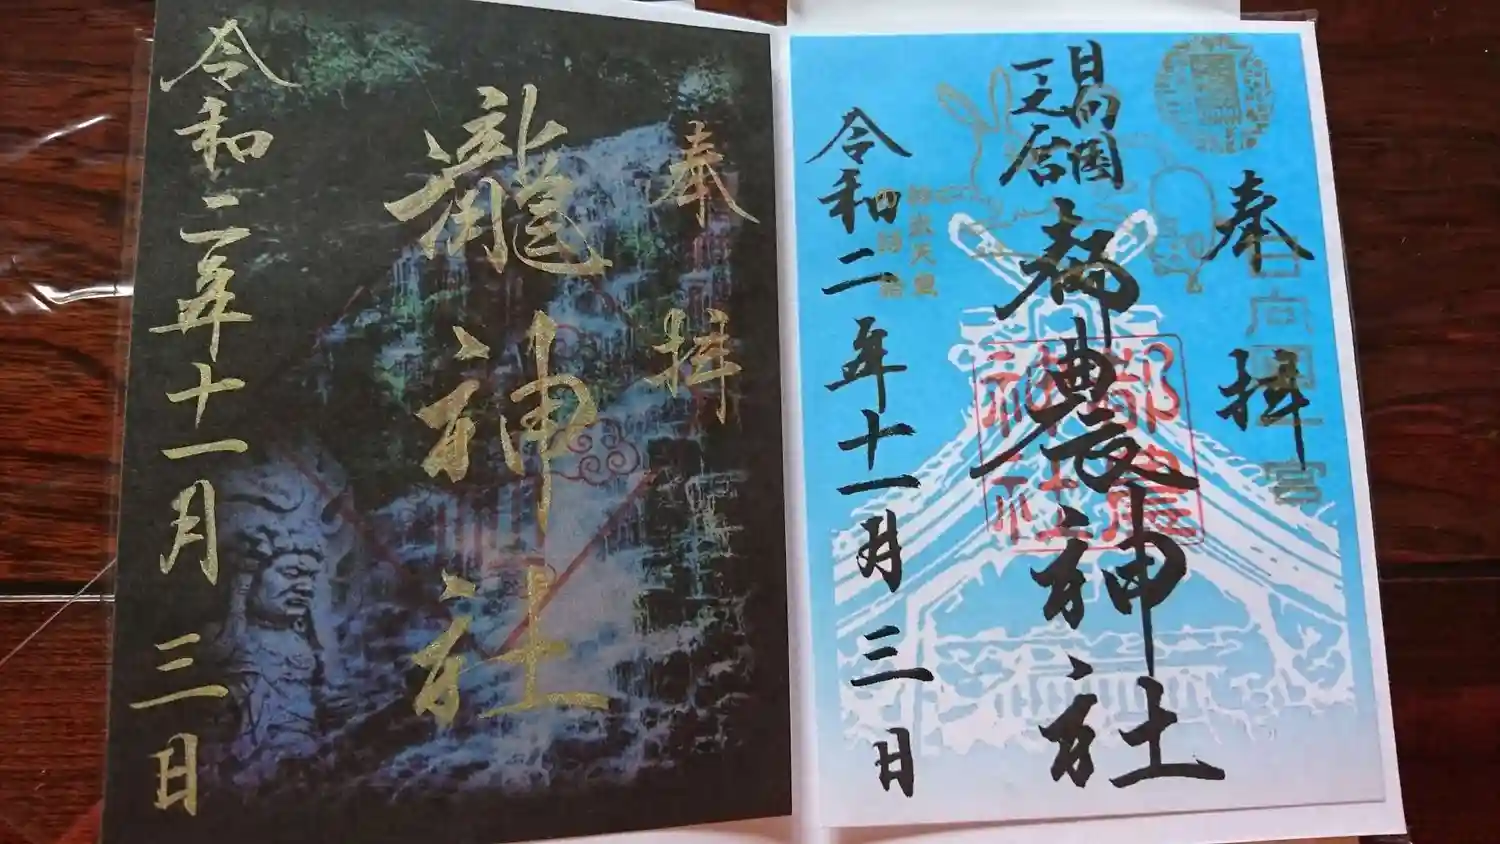 奉拝
日向国一之宮
日向國
一之宮
都農神社
都農神社
神武天皇
令和二年十一月三日
奉拝
瀧神社
令和二年十一月三日